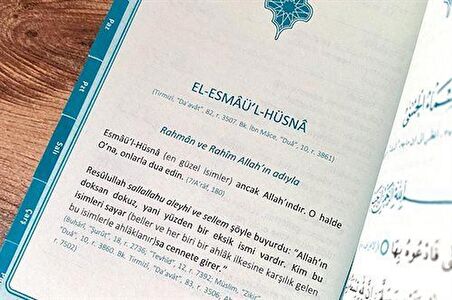 Paz
Pzt
Salı
Çarş
EL-ESMÂÜ’L-HÜSNÂ
(Tirmizî, “Da‘avât”, 82, r, 3507. Bk. İbn Mâce, “Duâ”, 10, r. 3861)
Rahmân ve Rahîm Allah’ın adıyla
Esmâü’l-Hüsnâ (en güzel isimler) ancak Allah’ındır. O halde
O’na, onlarla dua edin. (7/A‘râf, 180)
Resûlullah sallallahu aleyhi ve sellem şöyle buyurdu: “Allah’ın
doksan dokuz, yani yüzden bir eksik ismi vardır. Kim bu
isimleri sayar (beller ve her biri bir ahlâk ilkesine karşılık gelen
bu isimlerle ahlâklanır)sa cennete girer.”
(Buhârî, “Şurût”, 18, r. 2736, “Tevhîd”, 12, r. 7392; Müslim, “Zikir”,
“Duâ”, 10, r. 3860. Bk. Tirmizî, “Da‘avât”, 83, r. 3506;
r. 7502)
فَادْعُوهُ بِهَا